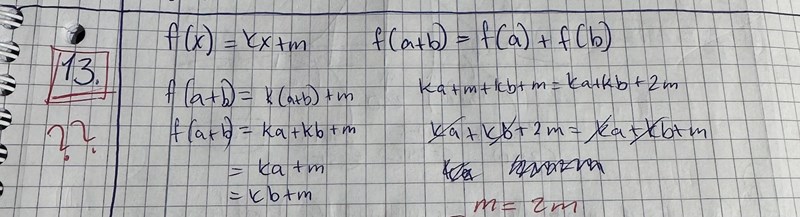 f(x) = kx+m
f(a+b) = f(a) + f(b)
13.
??
f(a+b) = k(a+b) + m
f(a+b) = ka+kb+m
= ka+m
= kb+m
ka+m+kb+m = ka+kb+2m
ka+kb+2m = ka+kb+m
m = 2m